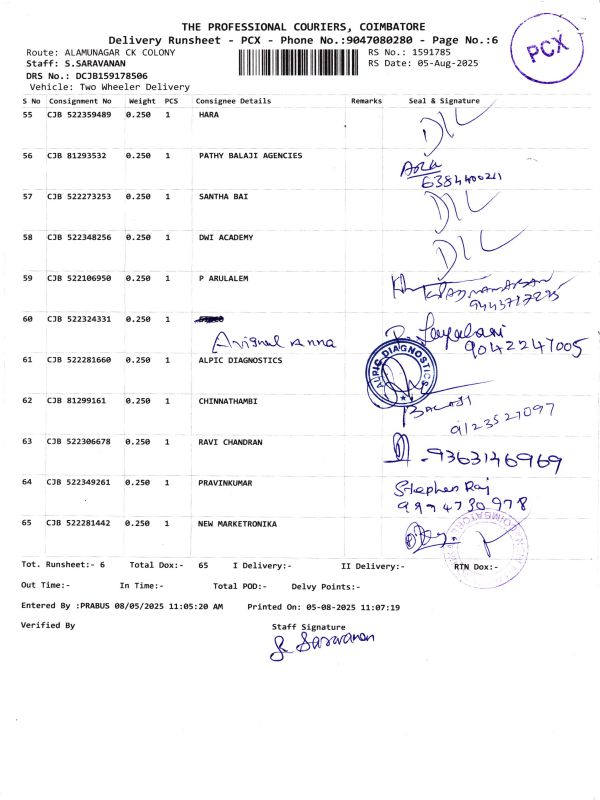 THE PROFESSIONAL COURIERS, COIMBATORE
Delivery Runsheet - PCX - Phone No.:9047080280 - Page No.:6
PCX
Route: ALAMUNAGAR CK COLONY
RS No.: 1591785
Staff: S.SARAVANAN
RS Date: 05-Aug-2025
DRS No.: DCJB159178506
Vehicle: Two Wheeler Delivery
S No Consignment No Weight PCS Consignee Details Remarks Seal & Signature
55 CJB 522359489 0.250 1 HARA D/L
56 CJB 81293532 0.250 1 PATHY BALAJI AGENCIES
6384400211
57 CJB 522273253 0.250 1 SANTHA BAI D/L
58 CJB 522348256 0.250 1 DWI ACADEMY D/L
59 CJB 522106950 0.250 1 P ARULALEM
60 CJB 522324331 0.250 1
9042247005
61 CJB 522281660 0.250 1 ALPIC DIAGNOSTICS
ALPIC DIAGNOSTICS
62 CJB 81299161 0.250 1 CHINNATHAMBI BALAJI
9123527097
63 CJB 522306678 0.250 1 RAVI CHANDRAN 9363146969
64 CJB 522349261 0.250 1 PRAVINKUMAR Stephen Raj
9994730978
65 CJB 522281442 0.250 1 NEW MARKETRONIKA
Tot. Runsheet:- 6 Total Dox:- 65 I Delivery:- II Delivery:- RTN Dox:-
Out Time:- In Time:- Total POD:- Delvy Points:-
Entered By :PRABUS 08/05/2025 11:05:20 AM Printed On: 05-08-2025 11:07:19
Verified By Staff Signature
S Saravanan